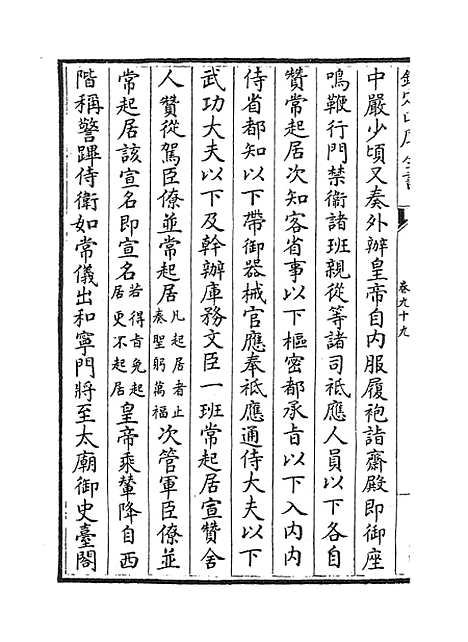 欽定四庫全書
卷九十九
中嚴少頃又奏外辦皇帝自内服履袍詣齋殿即御座
鳴鞭行門禁衛諸班親從等諸司祗應人員以下各自
贊常起居次知客省事以下樞密都承㫖以下入内内
侍省都知以下帶御器械官應奉祗應通侍大夫以下
武功大夫以下及幹辦庫務文臣一班常起居宣贊舍
人贊從駕臣僚並常起居凡起居者止奏聖躬萬福次管軍臣僚並
常起居該宣名即宣名若得㫖免起居更不起居皇帝乘輦降自西
階稱警蹕侍衛如常儀出和寧門將至太廟御史臺閤